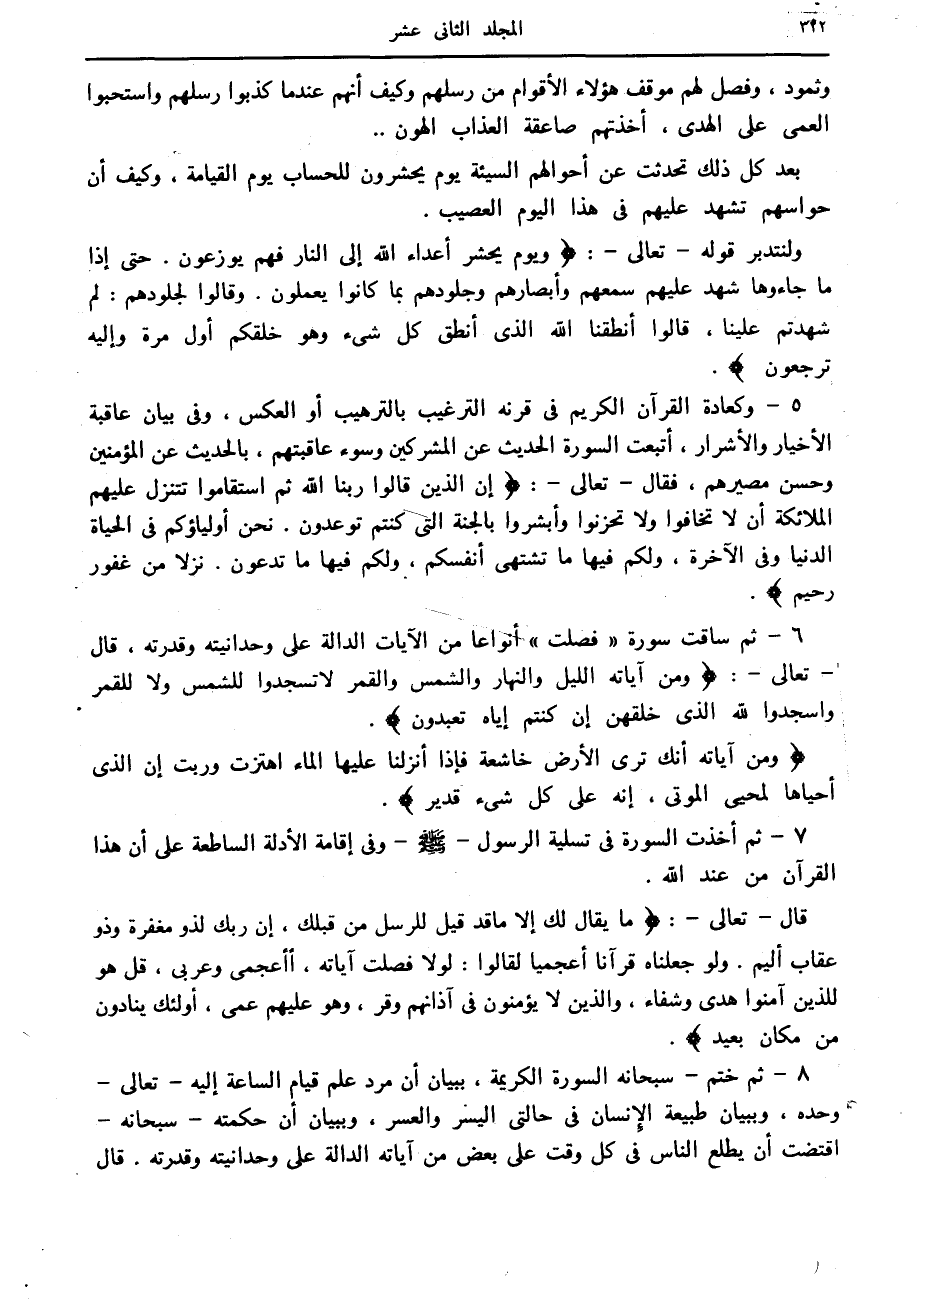 ٣٩٢ المجلد الثانى عشر
وثمود ، وفصل لهم موقف هؤلاء الأقوام من رسلهم وكيف أنهم عندما كذبوا رسلهم واستحبوا
العمى على الهدى ، أخذتهم صاعقة العذاب الهون ..
بعد كل ذلك تحدثت عن أحوالهم السيئة يوم يحشرون للحساب يوم القيامة ، وكيف أن
حواسهم تشهد عليهم فى هذا اليوم العصيب .
ولنتدبر قوله – تعالى – : ﴿ ويوم يحشر أعداء الله إلى النار فهم يوزعون . حتى إذا
ما جاءوها شهد عليهم سمعهم وأبصارهم وجلودهم بما كانوا يعملون . وقالوا لجلودهم : لم
شهدتم علينا ، قالوا أنطقنا الله الذى أنطق كل شىء وهو خلقكم أول مرة وإليه
ترجعون ﴾ .
٥ – وكعادة القرآن الكريم فى قرنه الترغيب بالترهيب أو العكس ، وفى بيان عاقبة
الأخيار والأشرار ، أتبعت السورة الحديث عن المشركين وسوء عاقبتهم ، بالحديث عن المؤمنين
وحسن مصيرهم ، فقال – تعالى – : ﴿ إن الذين قالوا ربنا الله ثم استقاموا تتنزل عليهم
الملائكة أن لا تخافوا ولا تحزنوا وأبشروا بالجنة التى كنتم توعدون . نحن أولياؤكم فى الحياة
الدنيا وفى الآخرة ، ولكم فيها ما تشتهى أنفسكم ، ولكم فيها ما تدعون . نزلا من غفور
رحيم ﴾ .
٦ – ثم ساقت سورة « فصلت » أنواعا من الآيات الدالة على وحدانيته وقدرته ، قال
– تعالى – : ﴿ ومن آياته الليل والنهار والشمس والقمر لاتسجدوا للشمس ولا للقمر
واسجدوا لله الذى خلقهن إن كنتم إياه تعبدون ﴾ .
﴿ ومن آياته أنك ترى الأرض خاشعة فإذا أنزلنا عليها الماء اهتزت وربت إن الذى
أحياها لمحيى الموتى ، إنه على كل شىء قدير ﴾ .
٧ – ثم أخذت السورة فى تسلية الرسول – ﷺ – وفى إقامة الأدلة الساطعة على أن هذا
القرآن من عند الله .
قال – تعالى – : ﴿ ما يقال لك إلا ماقد قيل للرسل من قبلك ، إن ربك لذو مغفرة وذو
عقاب أليم . ولو جعلناه قرآنا أعجميا لقالوا : لولا فصلت آياته ، أأعجمى وعربى ، قل هو
للذين آمنوا هدى وشفاء ، والذين لا يؤمنون فى آذانهم وقر ، وهو عليهم عمى ، أولئك ينادون
من مكان بعيد ﴾ .
٨ – ثم ختم – سبحانه السورة الكريمة ، ببيان أن مرد علم قيام الساعة إليه – تعالى –
وحده ، وببيان طبيعة الإنسان فى حالتى اليسر والعسر ، وببيان أن حكمته – سبحانه –
اقتضت أن يطلع الناس فى كل وقت على بعض من آياته الدالة على وحدانيته وقدرته . قال